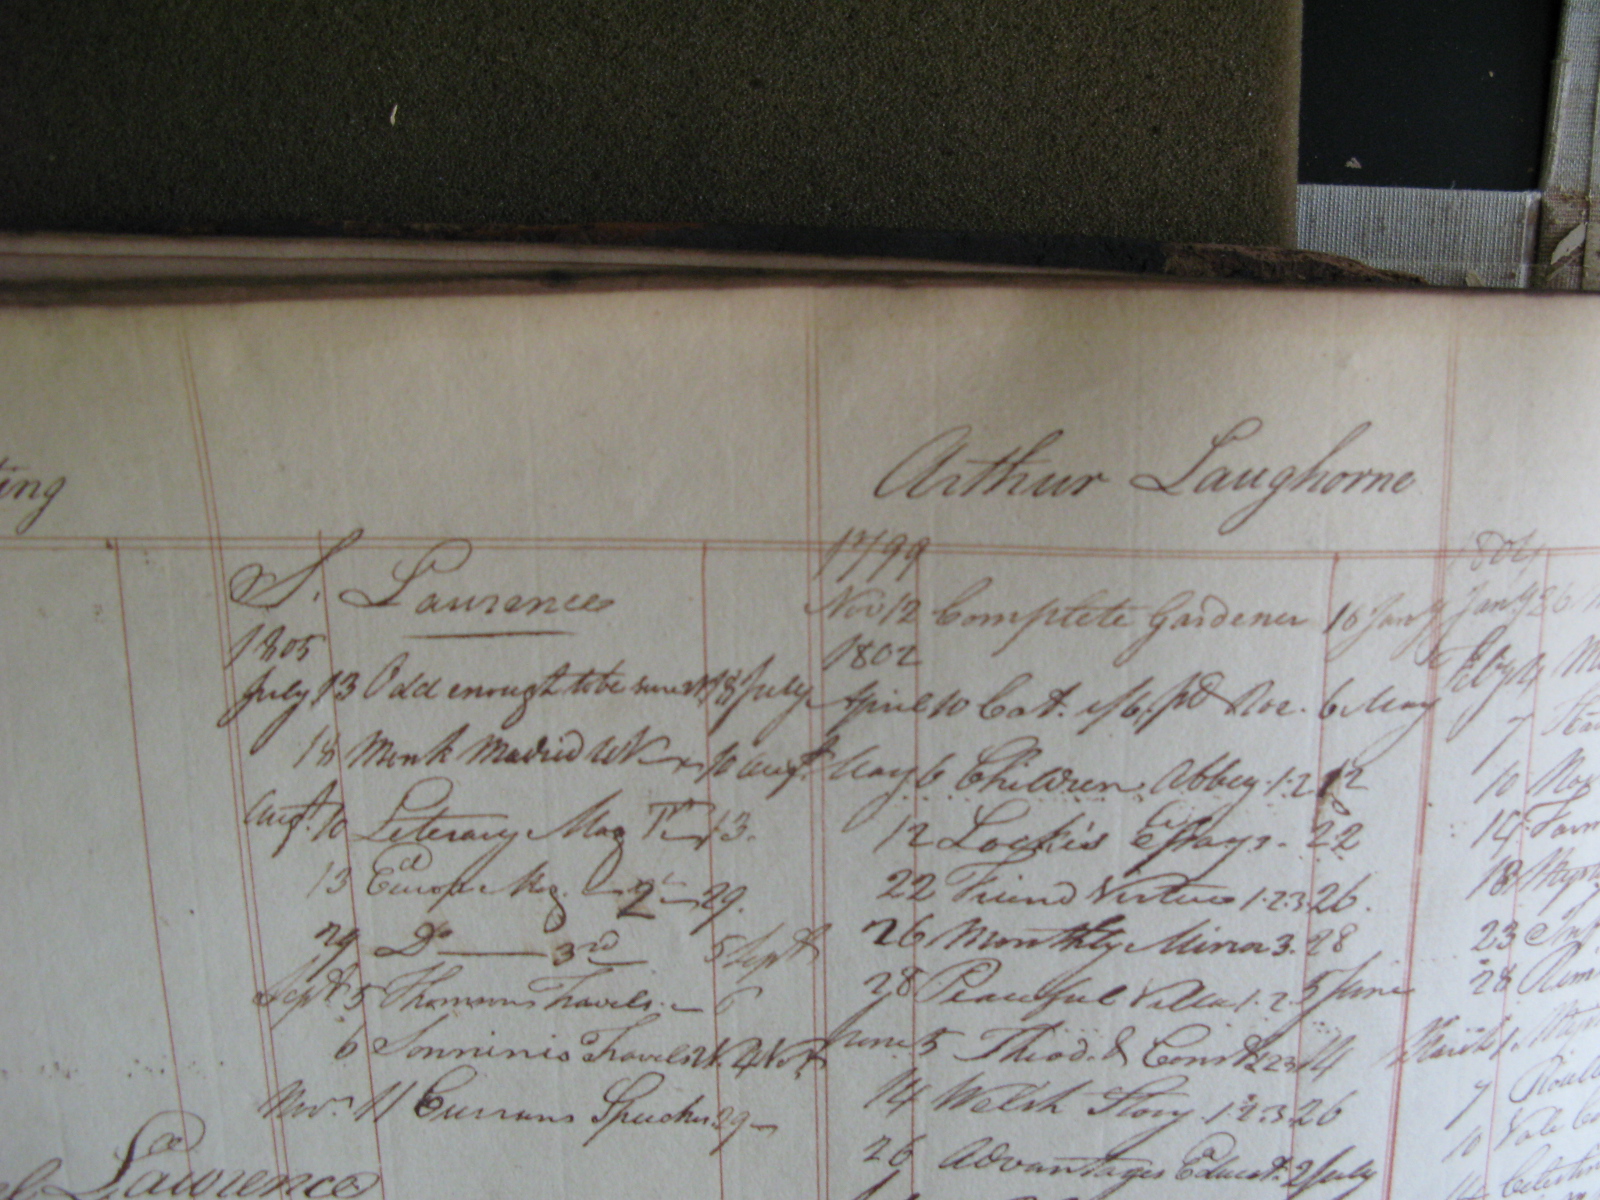 ing
S. Lawrence
1805
July 13 Odd enough to be sure 18 July
18 Monk Madrid 10 Augt
Augt 10 Literary Mag 13.
13 Europ. Mag. 2d 29.
29 Do 3rd 5 Septr
Septr 5 Thomsons Travels. 6
6 Sonninis Travels 2 V. 4 Novr
Novr 11 Currans Speeches 29
Lawrence
Arthur Laughorne
1799
Nov 12 Complete Gardener 16 Jany
1802
April 10 Cat. 6 May
May 6 Children Abbey 1.2 12
12 Locke's Essays. 22
22 Friend Virtue 1.2.3 26.
26 Monthly Mirror 3. 28
28 Peaceful Villa 1.2 5 June
June 5 Theod. & Const 1 2 3 14
14 Welsh Story 1.2.3 26
26 Advantages Educat. 2 July
1804
Jany 26
Feby 4
7
10
14
18
23
28
March 1
7
10 Vale